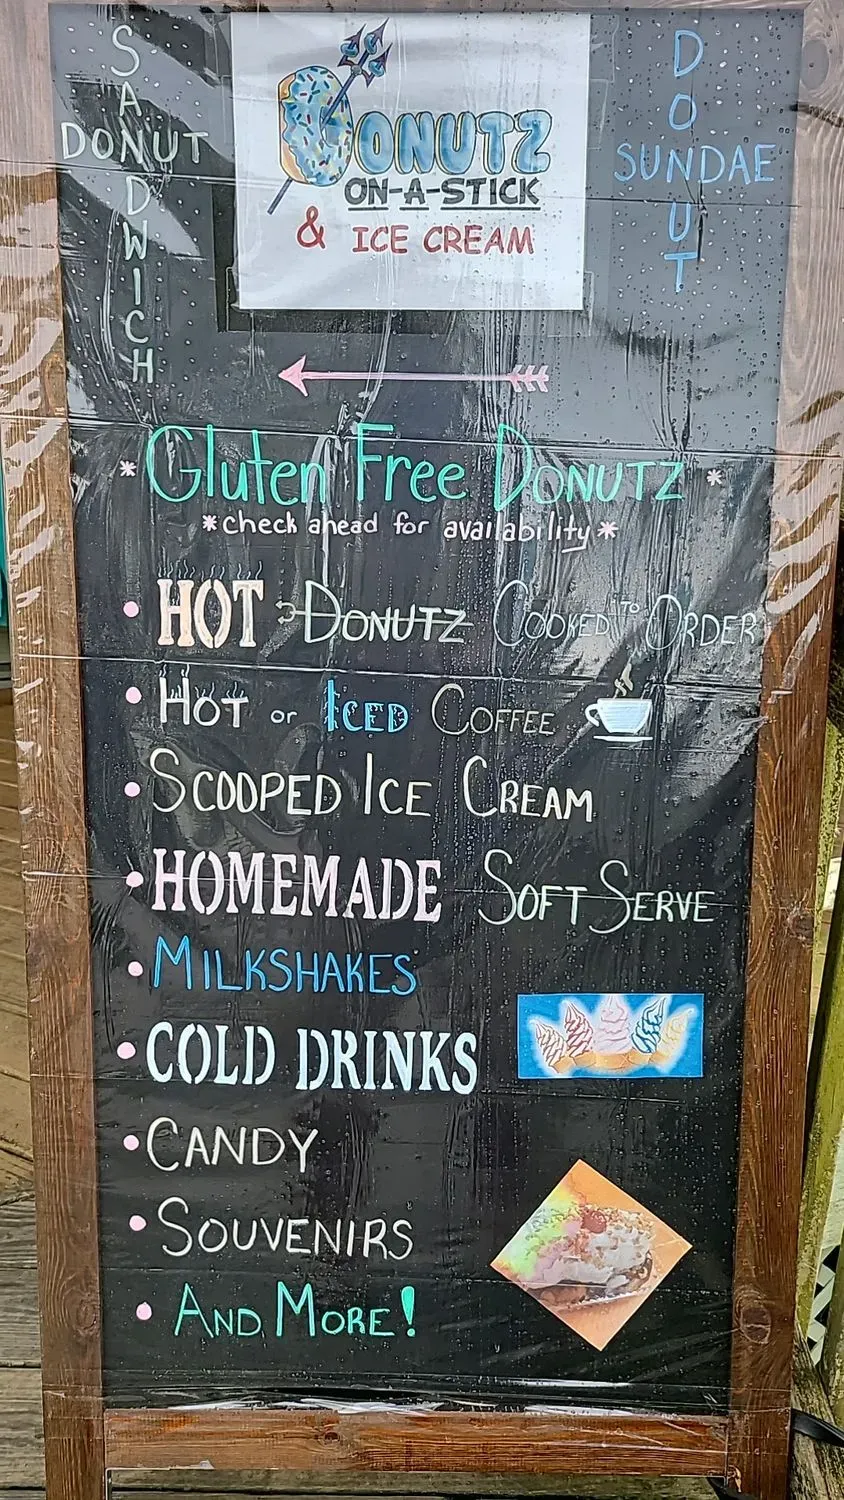 SANDWICH
DONUT
DONUTZ
ON-A-STICK
& ICE CREAM
DONUT
SUNDAE
*Gluten Free DONUTZ*
*check ahead for availability*
HOT DONUTZ COOKED TO ORDER
HOT or ICED COFFEE
SCOOPED ICE CREAM
HOMEMADE SOFT SERVE
MILKSHAKES
COLD DRINKS
CANDY
SOUVENIRS
AND MORE!